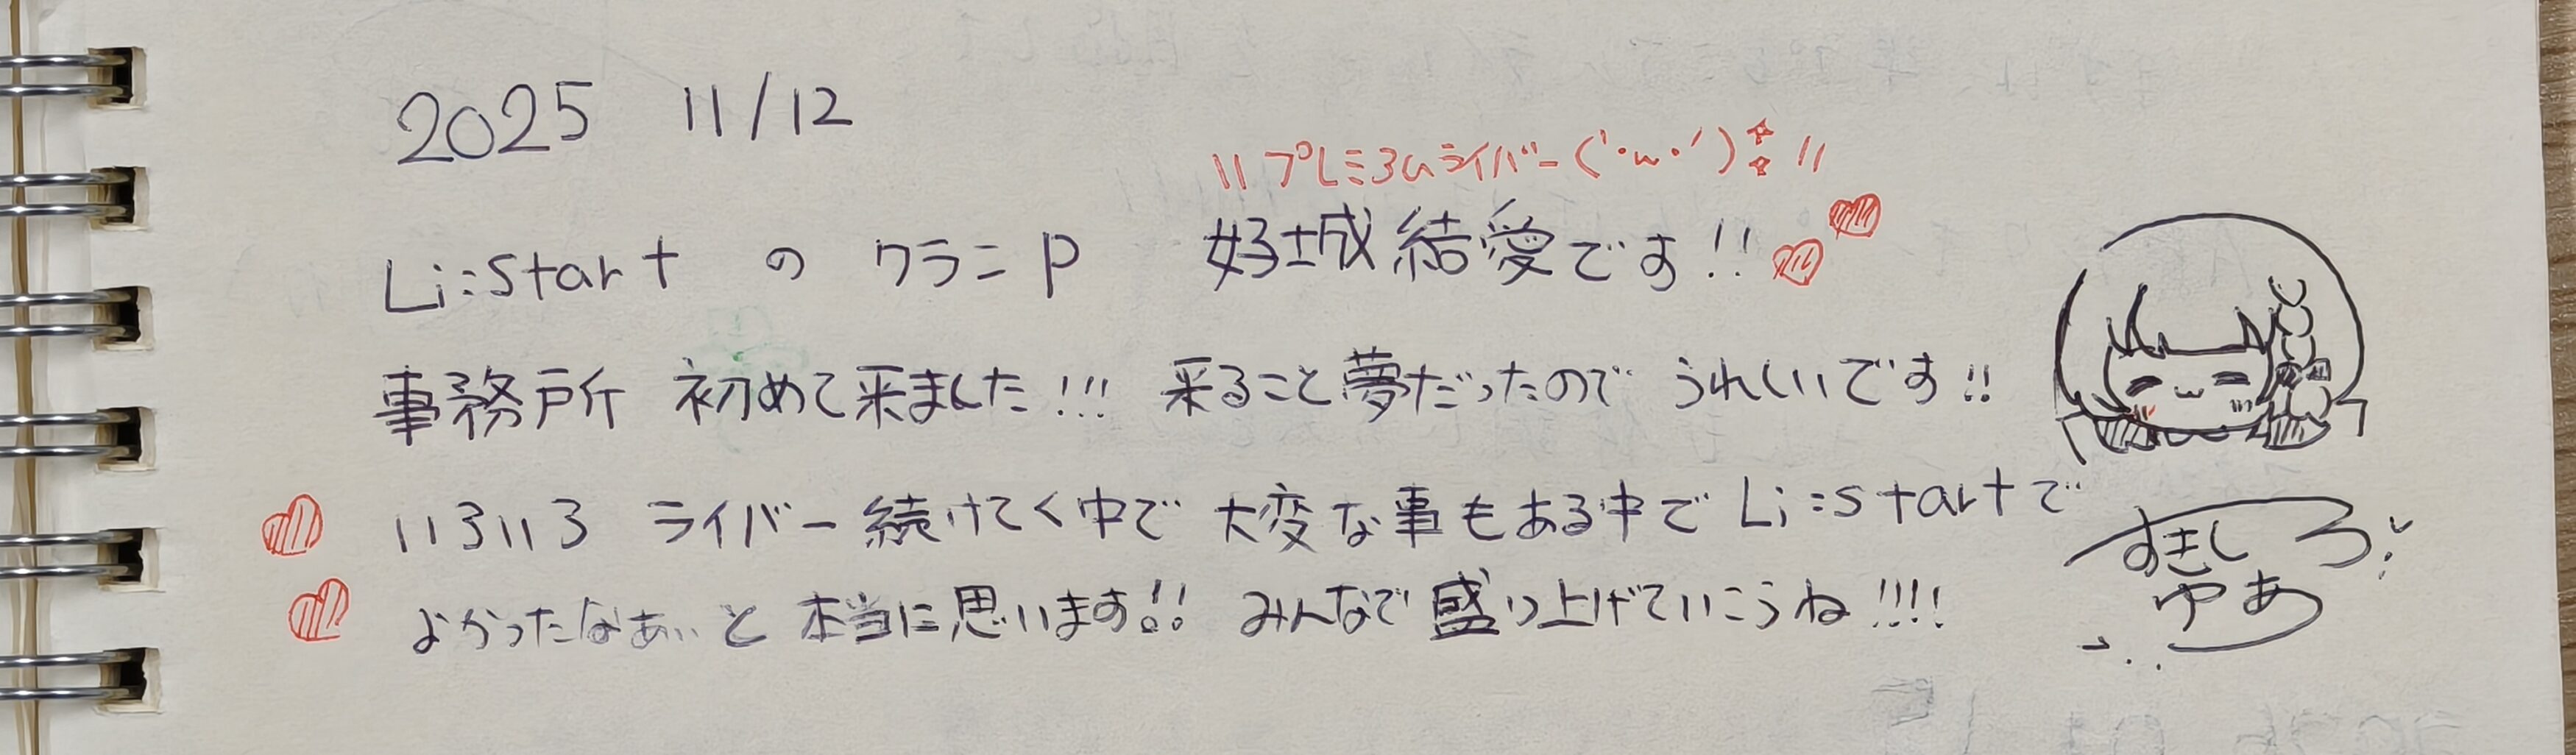 2025 11/12
\\プレミアムライバー(´・ω・`)//
Li:startのクラニP 好城結愛です!!
事務所 初めて来ました!!! 来ること夢だったので うれしいです!!
いろいろ ライバー続けてく中で 大変な事もある中で Li:startで
よかったなぁぃと 本当に思います!! みんなで盛り上げていこうね!!!!
すきしろ
ゆあ